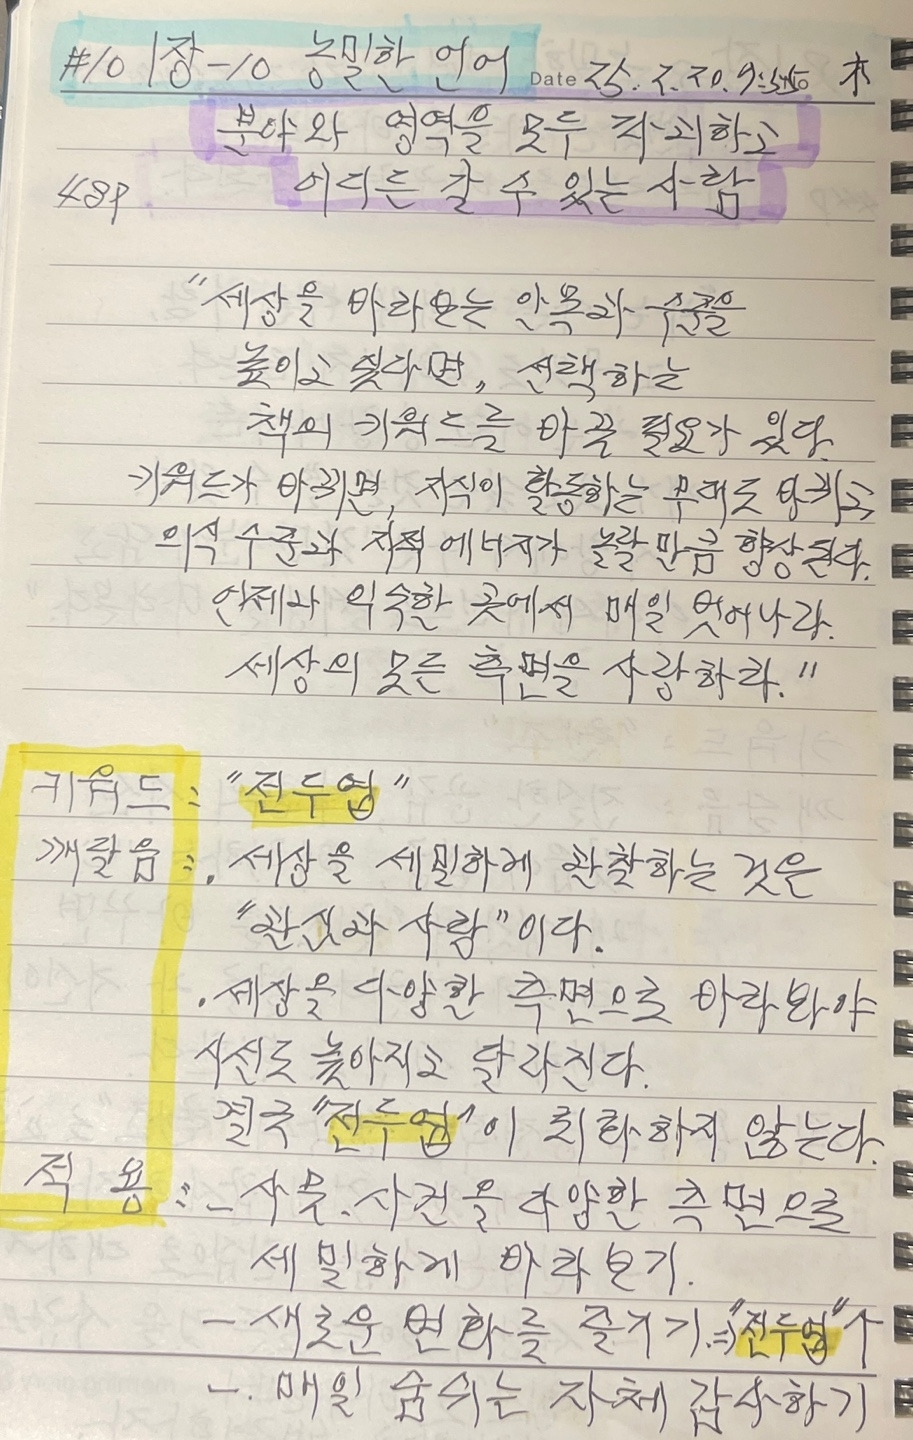 #10 1장-10 농밀한 언어 Date 25. 2. 20. 9:50 木
분야와 영역을 모두 파괴하고
48P 어디든 갈 수 있는 사람
"세상을 바라보는 안목과 수준을
높이고 싶다면, 선택하는
책의 키워드를 바꿀 필요가 있다.
키워드가 바뀌면, 지식이 활동하는 무대도 바뀌고,
의식 수준과 지적 에너지가 놀랄 만큼 향상된다.
언제나 익숙한 곳에서 매일 벗어나라.
세상의 모든 측면을 사랑하라."
키워드 : "전두엽"
깨달음 : . 세상을 세밀하게 관찰하는 것은
"관심과 사랑"이다.
. 세상을 다양한 측면으로 바라봐야
시선도 높아지고 달라진다.
결국 "전두엽"이 퇴화하지 않는다.
적 용 : - 사물. 사건을 다양한 측면으로
세밀하게 바라보기.
- 새로운 변화를 즐기기.⇒"전두엽"↑
-. 매일 숨쉬는 자체 감사하기